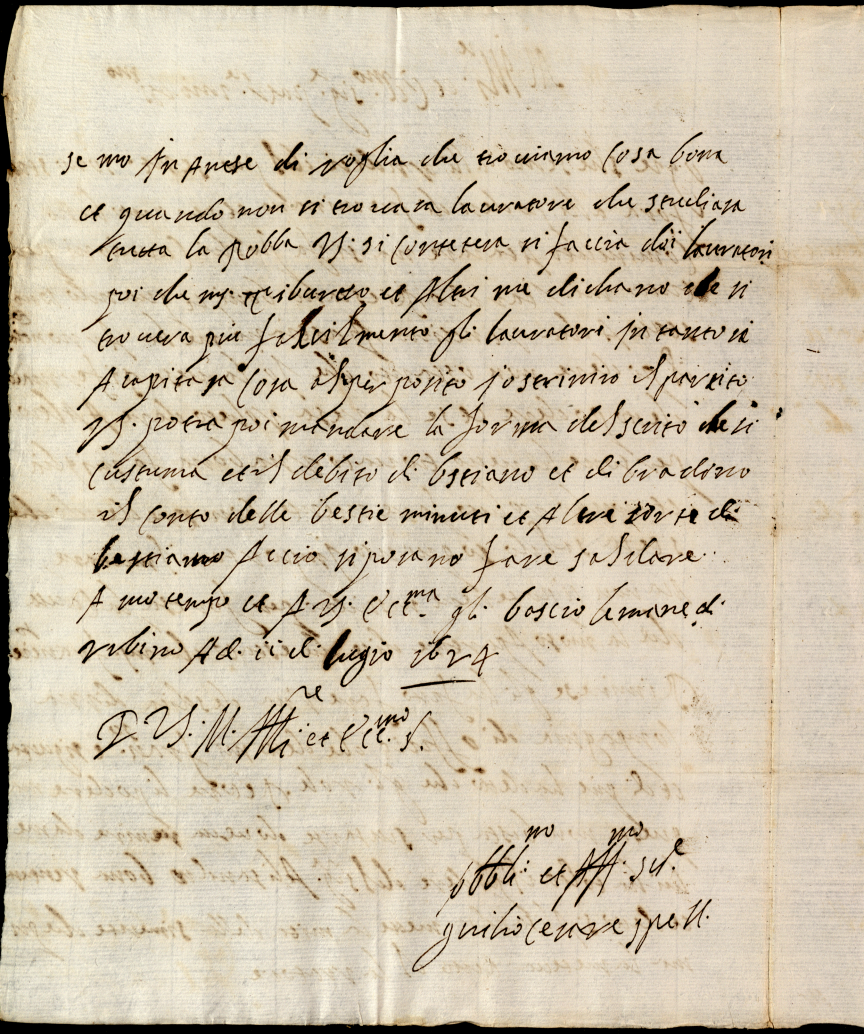 se mo in Arese di voglia che troviamo Cosa bona
et quando non si trovara lavratore che studiara
tutta la robba VS: si Contetera si faccia doi lavratori
poi che mr. Tiburzio et Altri me dichano che si
trovera piu facilmente gli lavratori in tanto si
Acapitara Cosa al per posito scriviro il partito
VS. potra poi mandare la forma del scrito che si
custuma et il debito di bstiano et di bradino
il Conto delle bestie minuti et Altre sorte di
bestiamo Accio si posano fare saldare
A suo tempo et A VS. Ecc.ma gli bascio le mane di
urbino Ad. ii di lugio 1624
D. VS. M. Ill.re et Ecc.mo S.
obbli.mo et Aff.mo ser.
guilio Cesare spell.